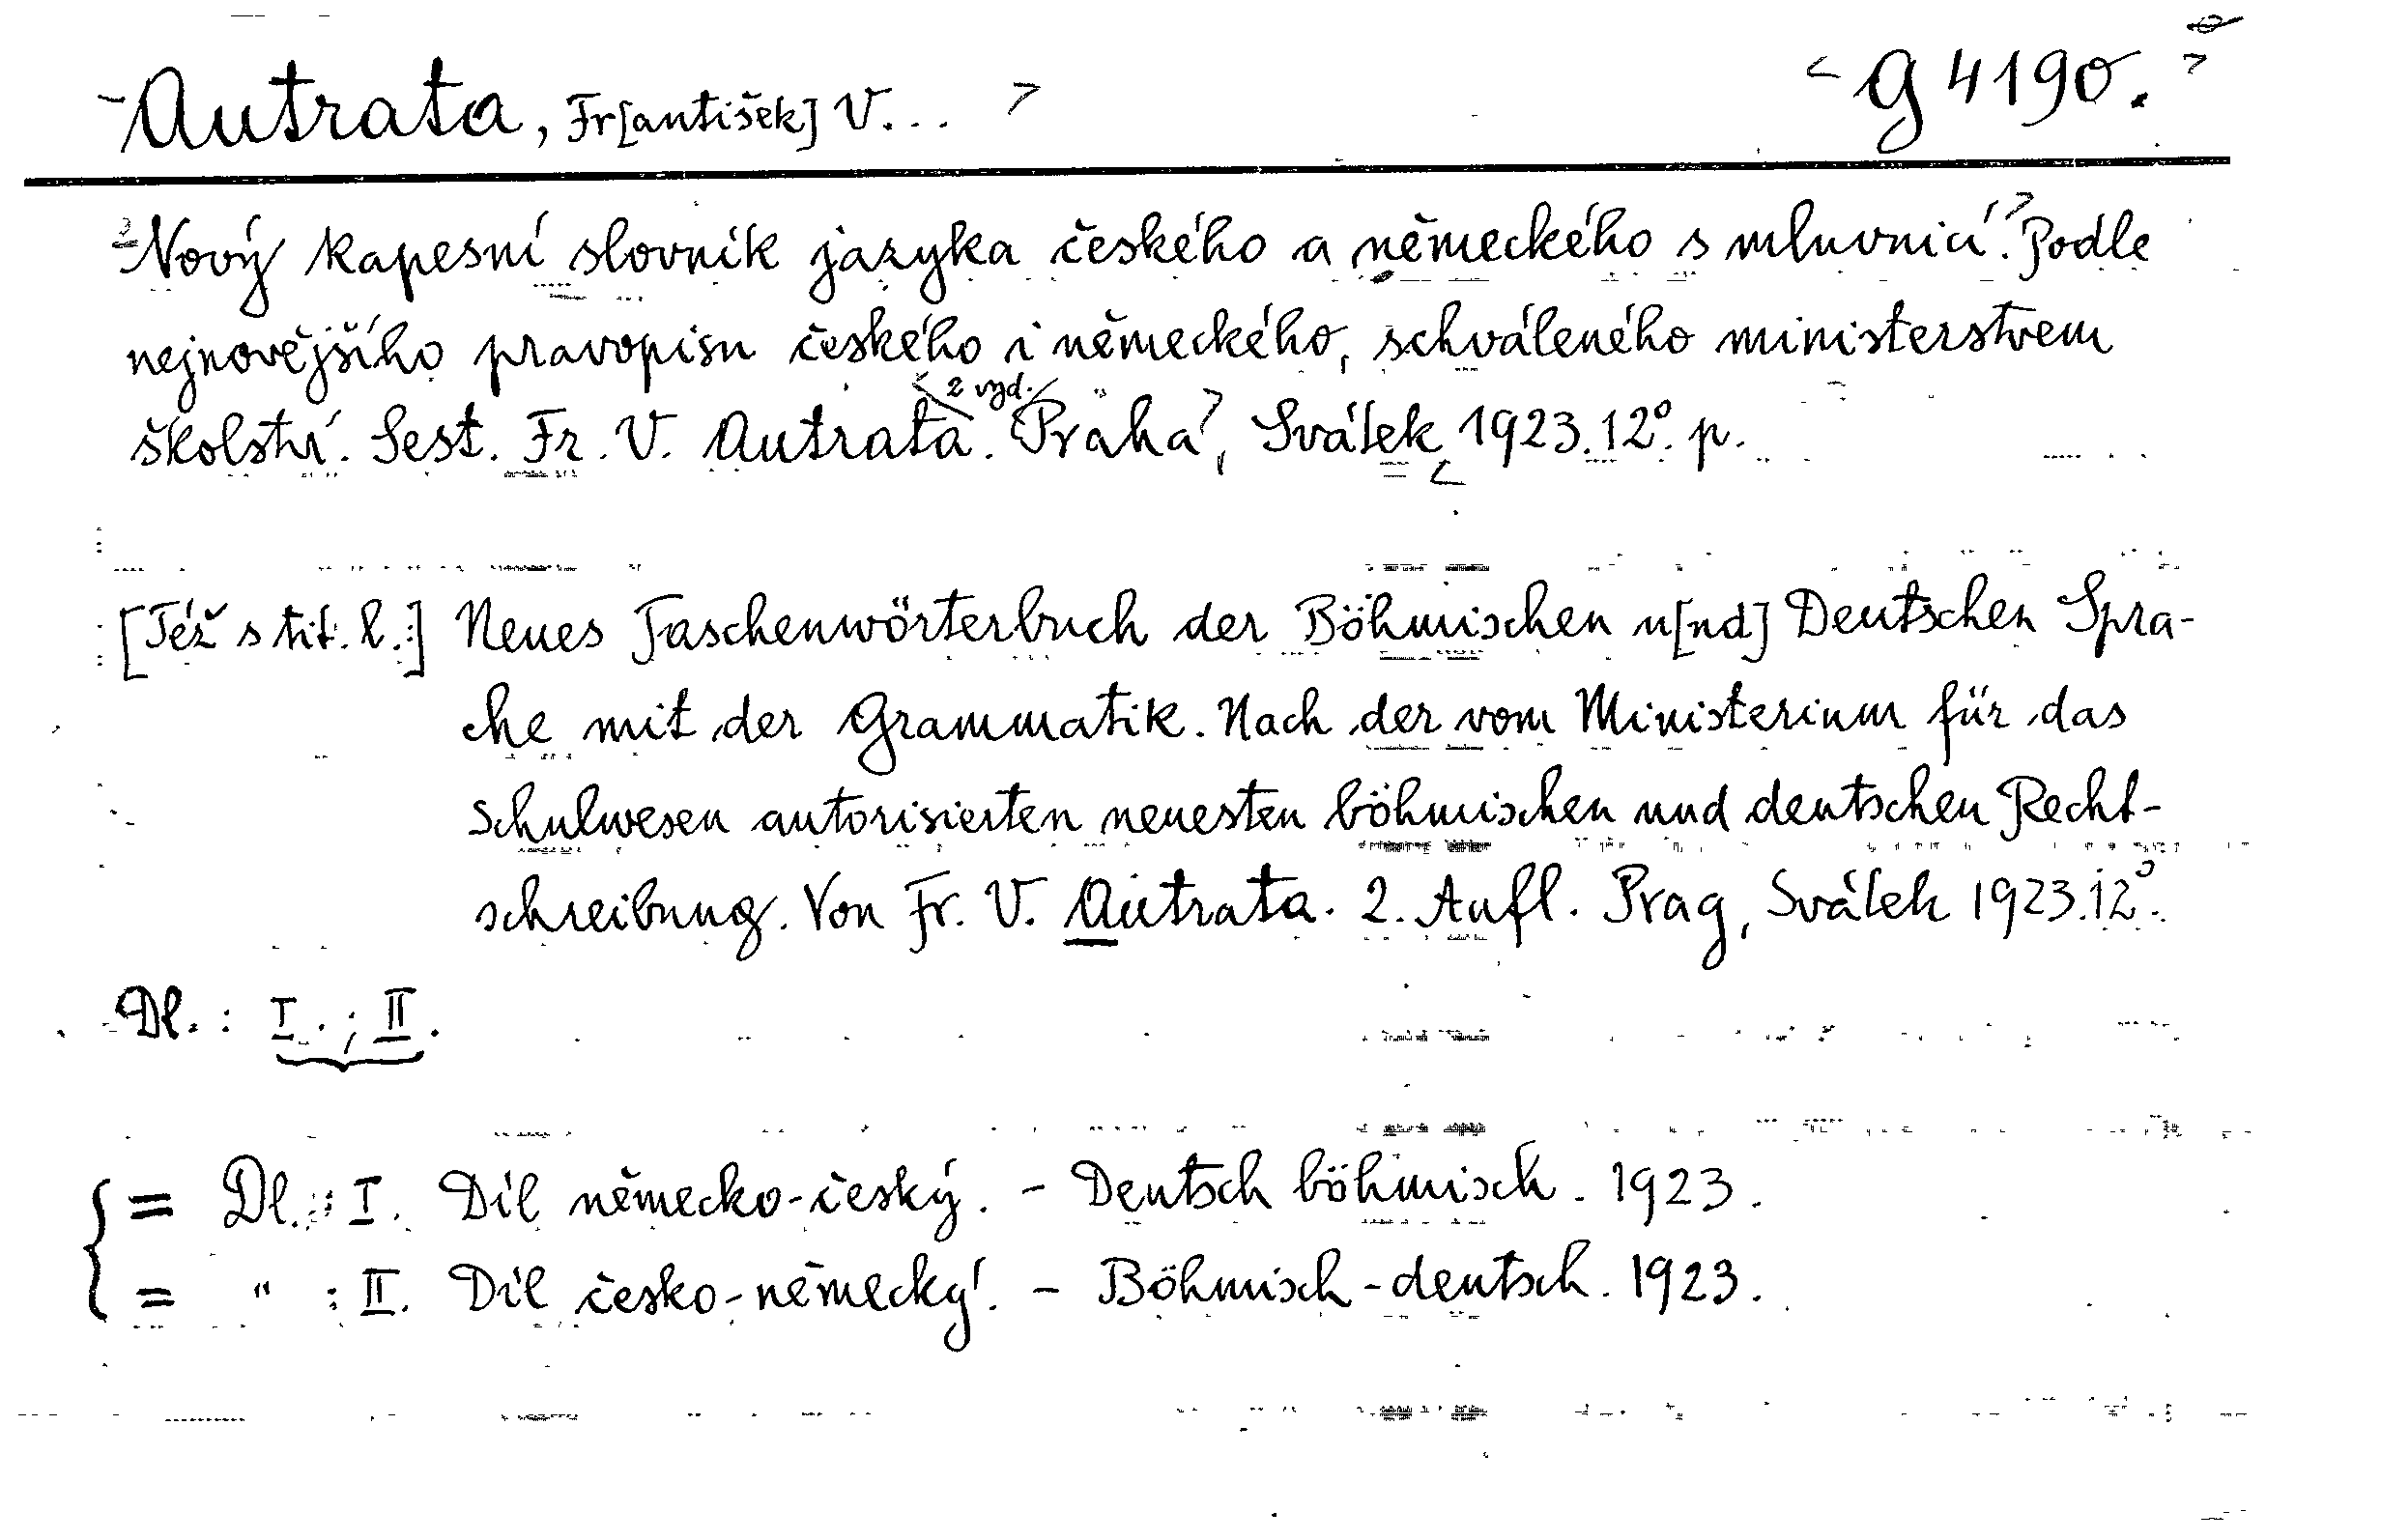 Autrata, Fr[antišek] V... g 4190.
Nový kapesní slovník jazyka českého a německého s mluvnicí. Podle
nejnovějšího pravopisu českého i německého, schváleného ministerstvem
2 vyd.
školství. Sest. Fr. V. Autrata. Praha, Svátek 1923. 12°. p.
[Též s tit. l.:] Neues Taschenwörterbuch der Böhmischen u[nd] Deutschen Spra-
che mit der Grammatik. Nach der vom Ministerium für das
Schulwesen autorisierten neuesten böhmischen und deutschen Recht-
schreibung. Von Fr. V. Autrata. 2. Aufl. Prag, Svátek 1923. 12°.
Dl.: I.; II.
= Dl.: I. Díl německo-český. - Deutsch böhmisch. 1923.
= " : II. Díl česko-německý. - Böhmisch-deutsch. 1923.